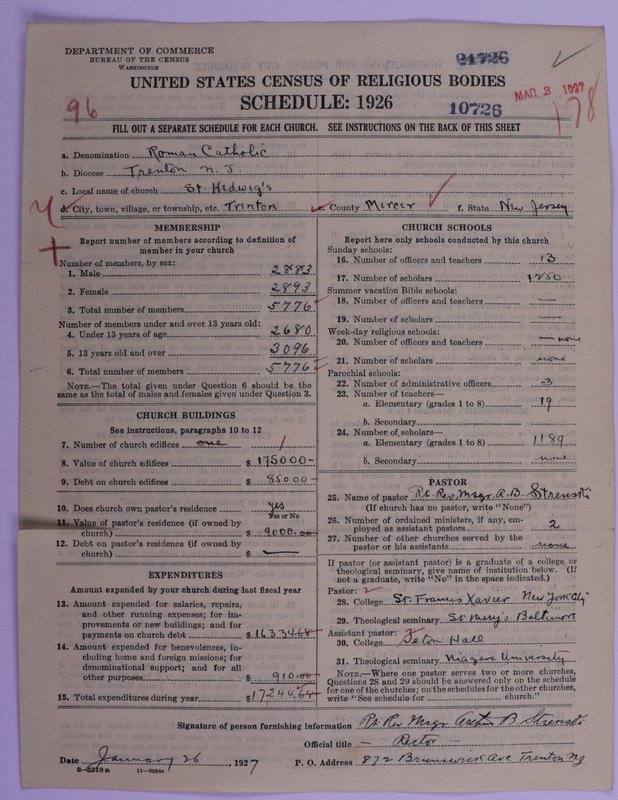 DEPARTMENT OF COMMERCE
BUREAU OF THE CENSUS
WASHINGTON
21726
UNITED STATES CENSUS OF RELIGIOUS BODIES
SCHEDULE: 1926
96
10726
MAR 3 1927
178
FILL OUT A SEPARATE SCHEDULE FOR EACH CHURCH. SEE INSTRUCTIONS ON THE BACK OF THIS SHEET
a. Denomination Roman Catholic
b. Diocese Trenton N. J.
c. Local name of church St. Hedwig's
d. City, town, village, or township, etc. Trenton e. County Mercer f. State New Jersey
MEMBERSHIP
Report number of members according to definition of
member in your church
Number of members, by sex:
1. Male 2883
2. Female 2893
3. Total number of members 5776
Number of members under and over 13 years old:
4. Under 13 years of age 2680
5. 13 years old and over 3096
6. Total number of members 5776
NOTE.—The total given under Question 6 should be the
same as the total of males and females given under Question 3.
CHURCH BUILDINGS
See instructions, paragraphs 10 to 12
7. Number of church edifices one 1
8. Value of church edifices $ 175000-
9. Debt on church edifices $ 85000-
10. Does church own pastor's residence yes
Yes or No
11. Value of pastor's residence (if owned by
church) $ 9000.00
12. Debt on pastor's residence (if owned by
church) $ —
EXPENDITURES
Amount expended by your church during last fiscal year
13. Amount expended for salaries, repairs,
and other running expenses; for im-
provements or new buildings; and for
payments on church debt $ 16334.64
14. Amount expended for benevolences, in-
cluding home and foreign missions; for
denominational support; and for all
other purposes $ 910.00
15. Total expenditures during year $ 17244.64
CHURCH SCHOOLS
Report here only schools conducted by this church
Sunday schools:
16. Number of officers and teachers 13
17. Number of scholars 1250
Summer vacation Bible schools:
18. Number of officers and teachers —
19. Number of scholars —
Week-day religious schools:
20. Number of officers and teachers — none
21. Number of scholars none
Parochial schools:
22. Number of administrative officers 3
23. Number of teachers—
a. Elementary (grades 1 to 8) 19
b. Secondary
24. Number of scholars—
a. Elementary (grades 1 to 8) 1189
b. Secondary none
PASTOR
25. Name of pastor Rt. Rev. Msgr. A. B. Strenski
(If church has no pastor, write "None")
26. Number of ordained ministers, if any, em-
ployed as assistant pastors 2
27. Number of other churches served by the
pastor or his assistants none
If pastor (or assistant pastor) is a graduate of a college or
theological seminary, give name of institution below. (If
not a graduate, write "No" in the space indicated.)
Pastor: 2
28. College St. Francis Xavier New York City
29. Theological seminary St. Mary's Baltimore
Assistant pastor: 2
30. College Seton Hall
31. Theological seminary Niagara University
NOTE.—Where one pastor serves two or more churches,
Questions 28 and 29 should be answered only on the schedule
for one of the churches; on the schedules for the other churches,
write "See schedule for church."
Signature of person furnishing information Rt. Rev. Msgr. B Strenski
Official title — Rector —
Date January 26, 1927
P. O. Address 872 Brunswick Ave Trenton NJ
8-5518a 11-9034a